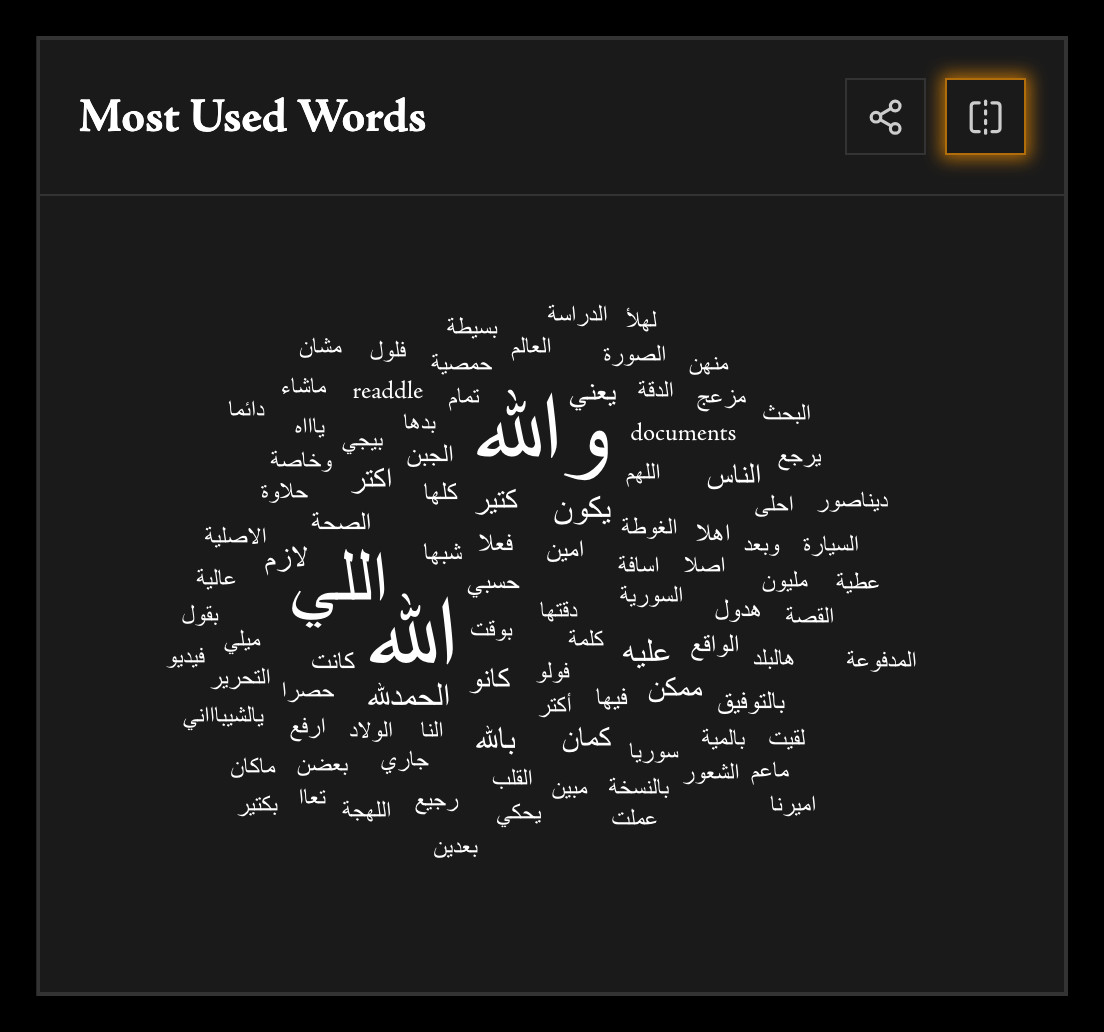 Most Used Words
لهلأ
الدراسة
بسيطة
العالم
فلول
مشان
الصورة
حمصية
منهن
يعني
الدقة
مزعج
readdle
ماشاء
تمام
والله
دائما
البحث
بدها
ياااه
documents
بيجي
الجبن
وخاصة
يرجع
اللهم
الناس
اكتر
كلها
حلاوة
كتير
ديناصور
احلى
يكون
الصحة
الغوطة
اهلا
الاصلية
السيارة
وبعد
فعلا
شبها
امين
لازم
اصلا
اسافة
عالية
اللي
حسبي
مليون
عطية
السورية
هدول
دقتها
القصة
بقول
الله
بوقت
كلمة
ميلي
الواقع
عليه
فيديو
كانت
هالبلد
المدفوعة
فولو
التحرير
كانو
حصرا
الحمدلله
ممكن
فيها
أكتر
بالتوفيق
يالشيباااني
ارفع
الولاد
النا
بالله
كمان
بالمية
لقيت
سوريا
جاري
بعضن
ماكان
القلب
الشعور
ماعم
مبين
بالنسخة
تعاا
بكتير
رجيع
اللهجة
اميرنا
يحكي
عملت
بعدين